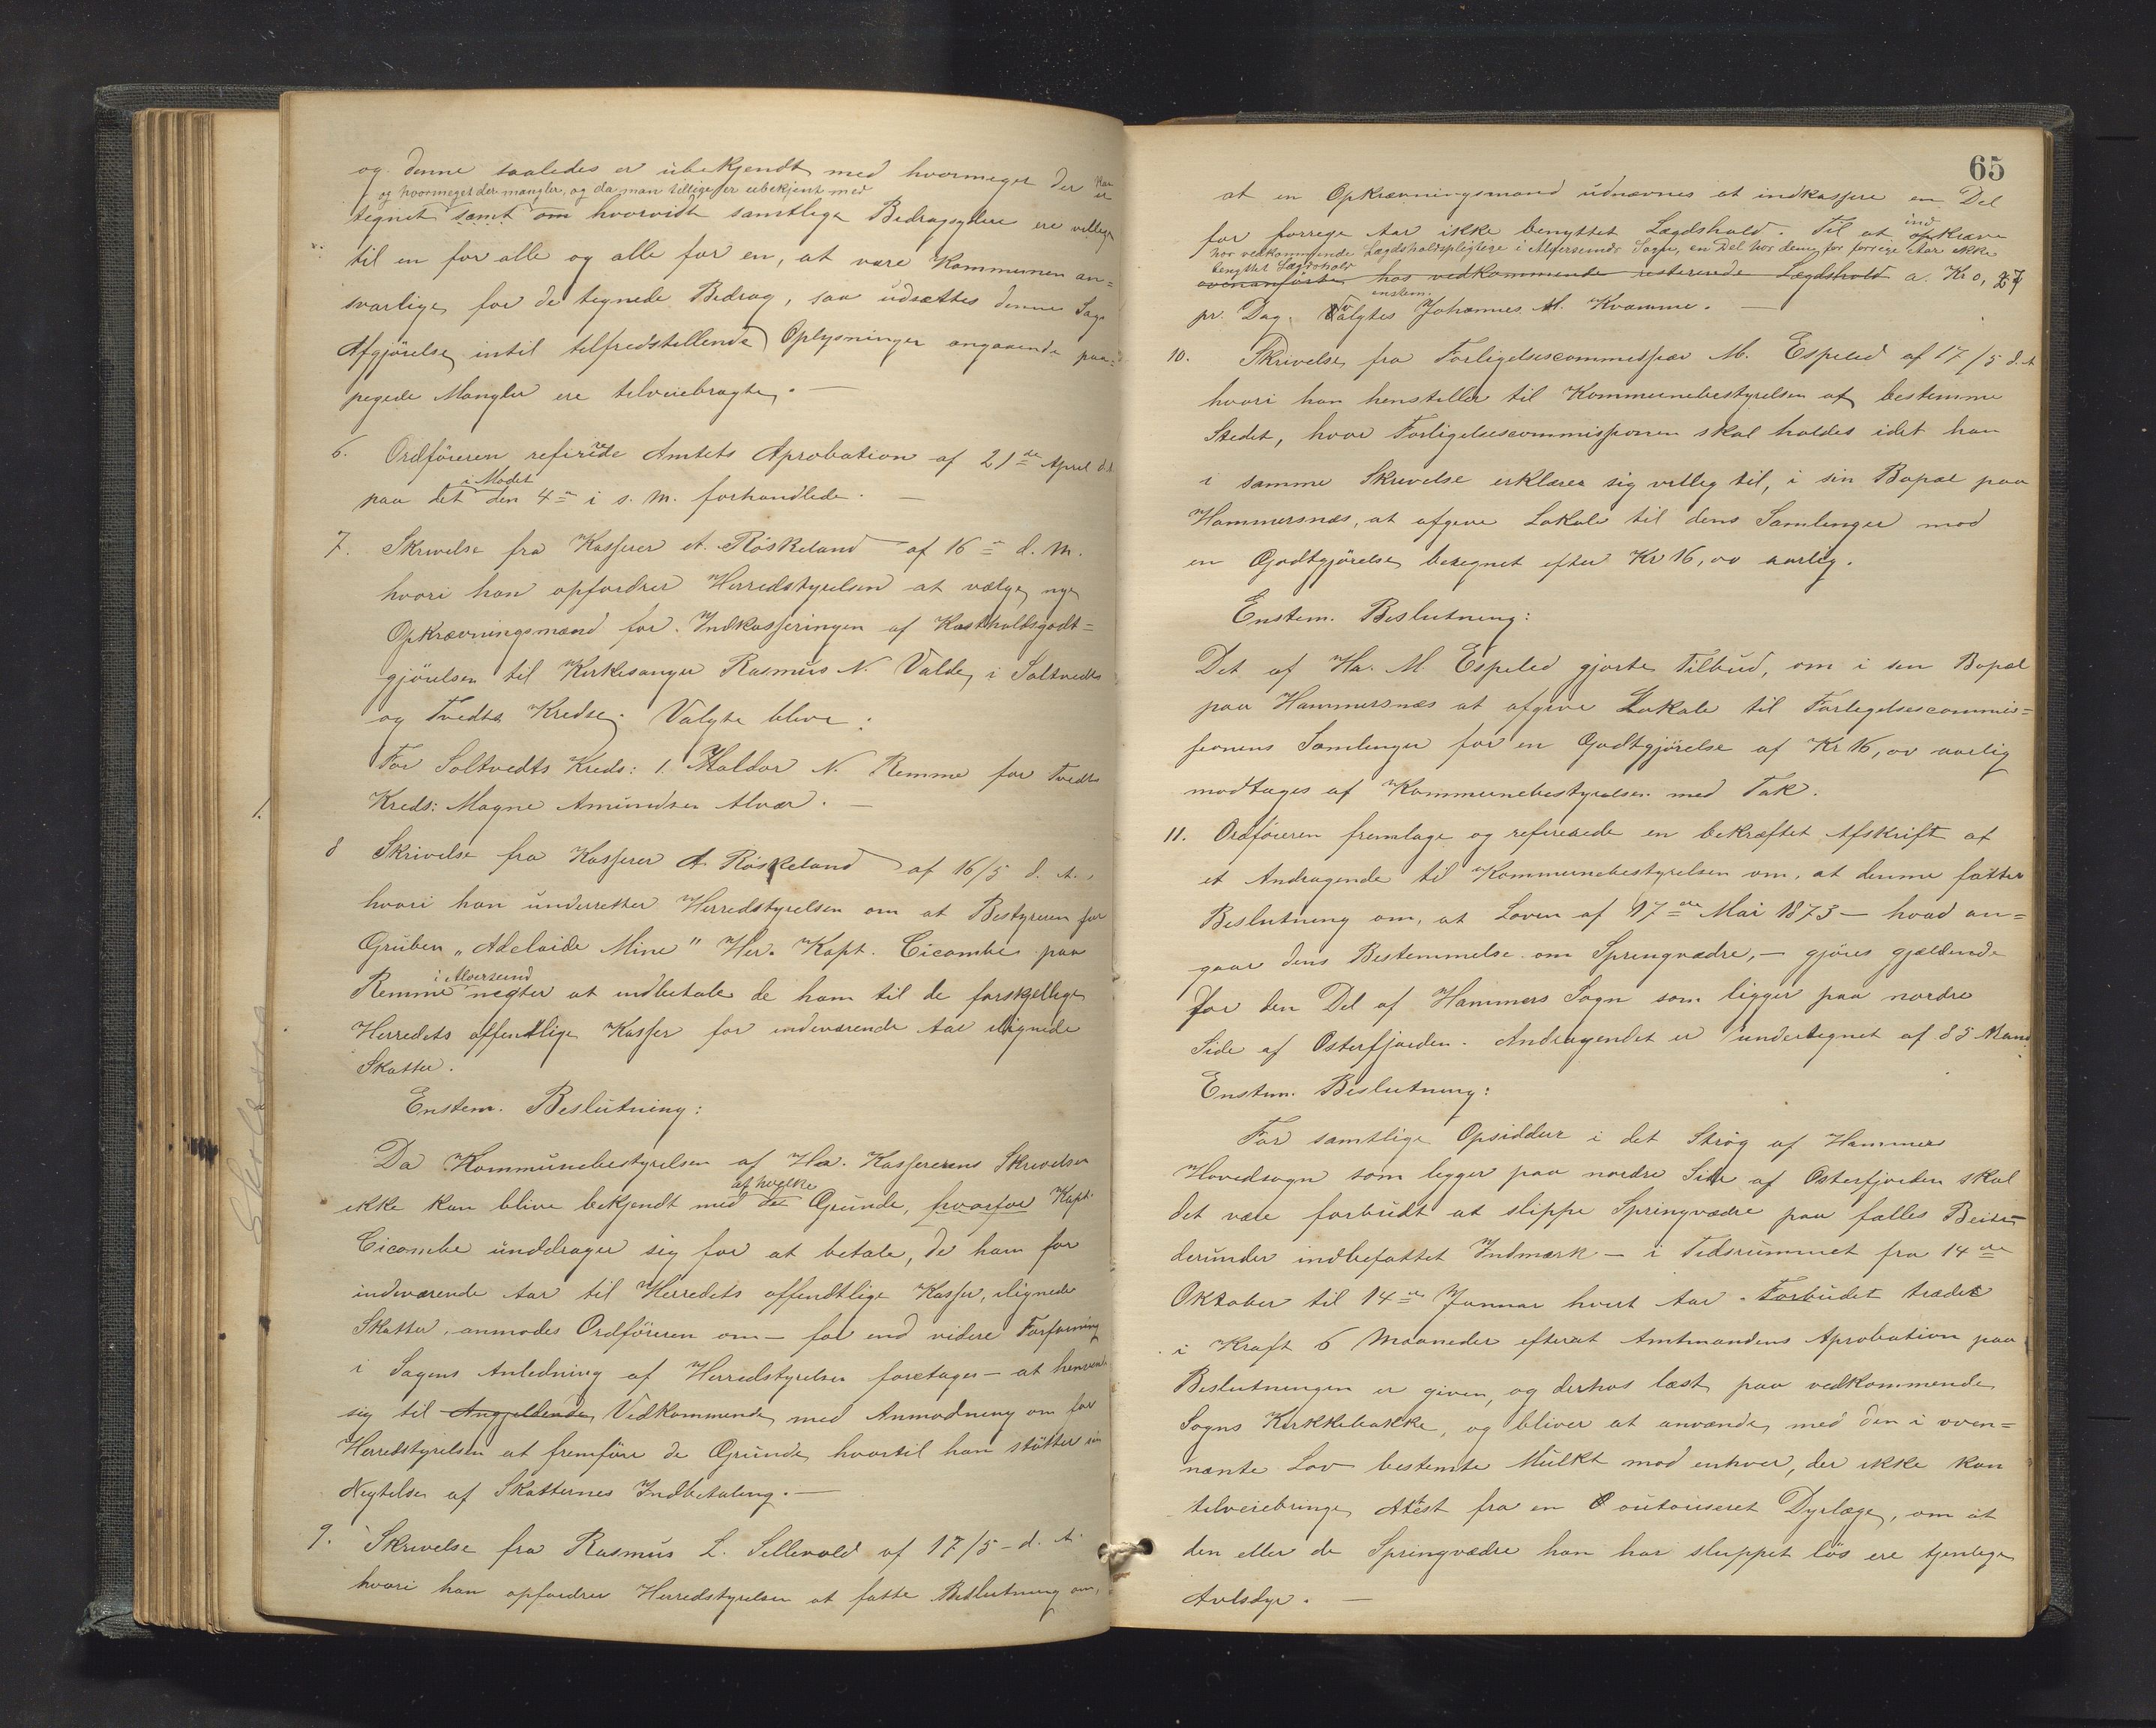 og denne saaledes er ubekjendt med hvormeget der er
og hvormeget der mangler, og da man tillige er ubekjent med
tegnet samt om hvorvidt samtlige Bidragsydere ere villige
til en for alle og alle for en, at være Kommunen an=
svarlige for de tegnede Bedrag, saa udsættes denne Sags
Afgjörelse intil tilfredstillende Oplysninger angaaende paa=
pegede Mangler ere tilveiebragte. —
6. Ordföreren refererede Amtets Aprobation af 21de April d.A.
i Mödet
paa det den 4de i s. M. forhandlede. —
7. Skrivelse fra Kasserer A. Röskeland af 16de d. M.
hvori han opfordrer Herredstyrelsen at vælge nye
Opkrævningsmænd for Indkasseringen af Kostholdsgodt=
gjörelsen til Kirkesanger Rasmus N. Valde, i Soltvedts
og Tvedts Kredse. Valgte bleve:
For Soltvedts Kreds: 1. Haldor N. Remme for Tvedts
Kreds: Magne Amundsen Alvær. —
8 Skrivelse fra Kasserer A. Röskeland af 16/5 d. A.,
hvori han underretter Herredstyrelsen om at Bestyreren for
Gruben „Adelaide Mine" Her. Kapt. Cicombe paa
i Alversund
Remme nægter at indbetale de ham til de forskjellige
Herredets offentlige Kasser for indeværende Aar ilignede
Skatter.
Enstem. Beslutning:
Da Kommunebestyrelsen af Hr. Kassererens Skrivelse
af hvelke
ikke kan blive bekjendt med de Grunde, hvorfor Kapt.
Cicombe unddrager sig for at betale, de ham for
indeværende Aar til Herredets offendtlige Kasser, ilignede
Skatter, anmodes Ordföreren om — för end videre Forföining
i Sagens Anledning af Herredstyrelsen foretages — at henvende
sig til Angjeldende, Vedkommende med Anmodning om for
Herredstyrelsen at fremföre de Grunde, hvortil han stötter sin
Negtelse af Skatternes Indbetaling. —
9. Skrivelse fra Rasmus L. Sellevold af 17/5 — d. A.
hvori han opfordrer Herredstyrelsen at fatte Beslutning om,
65
at en Opkrævningsmand udnævnes at indkassere en Del
ind
for forrege Aar ikke benyttet Lægdshold. Til at opkræve
hos vedkommende Lægdsholdspligtige i Alversunds Sogn, en Del hos dem, for forrige Aar ikke
benyttet Lægdshold
ovenanförte hos vedkommende resterende Lægdshold a. Kr 0,27
enstem.
pr. Dag. Valgtes Johannes M. Kvamme. —
10. Skrivelse fra Forligelsescommissær M. Espelid af 17/5 d. A
hvori han henstiller til Kommunebestyrelsen at bestemme
Stedet, hvor Forligelsescommissionen skal holdes idet han
i samme Skrivelse erklærer sig velleg til, i sin Bopæl paa
Hammersnæs, at afgive Lokale til dens Samlinger mod
en Godtgjörelse beregnet efter Kr 16,00 aarlig.
Enstem. Beslutning:
Det af Hr. M. Espelid gjorte Tilbud, om i sin Bopæl
paa Hammersnæs at afgive Lokale til Forlegelsescommis=
sionens Samlinger for en Godtgjörelse af Kr 16,00 aarlig
modtages af Kommunebestyrelsen med Tak.
11. Ordföreren fremlage og refererede en bekræftet Afskrift af
et Andragende til Kommunebestyrelsen om, at denne fatter
Beslutning om, at Loven af 17de Mai 1873 — hvad an=
gaar dens Bestemmelse om Springvædre, — gjöres gjældende
for den Del af Hammers Sogn som ligger paa nordre
Side af Osterfjorden. Andragendet er undertegnet af 85 Mand.
Enstem. Beslutning:
For samtlige Opsiddere i det Strög af Hammers
Hovedsogn som ligger paa nordre Side af Osterfjorden skal
det være forbudt at slippe Springvædre paa fælles Beite —
derunder indbefattet Indmark — i Tidsrummet fra 14de
Oktober til 14de Januar hvert Aar. Forbudet træder
i Kraft 6 Maaneder efterat Amtmandens Aprobation paa
Beslutningen er given, og derhos læst paa vedkommende
Sogns Kirkkebakke, og bliver at anvende, med den i oven=
nænte Lov bestemte Mulkt mod enhver, der ikke kan
tilveiebringe Attest fra en autoriseret Dyrlæge, om at
den eller de Springvædre han har sluppet lös ere tjenlige
Avlsdyr. —